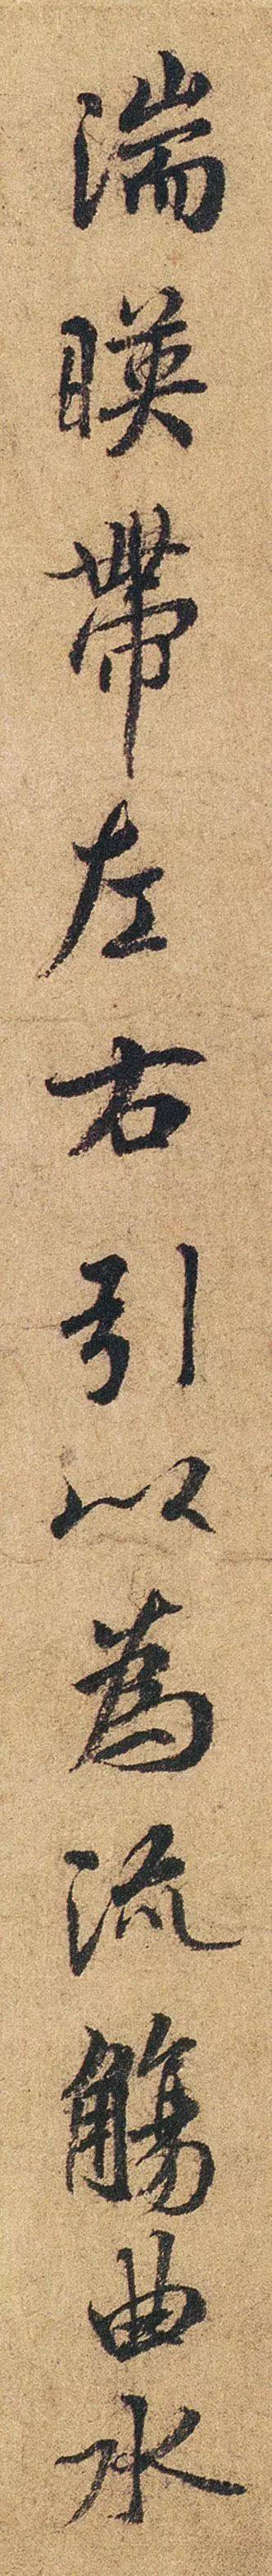 湍暎帶左右引以為流觴曲水